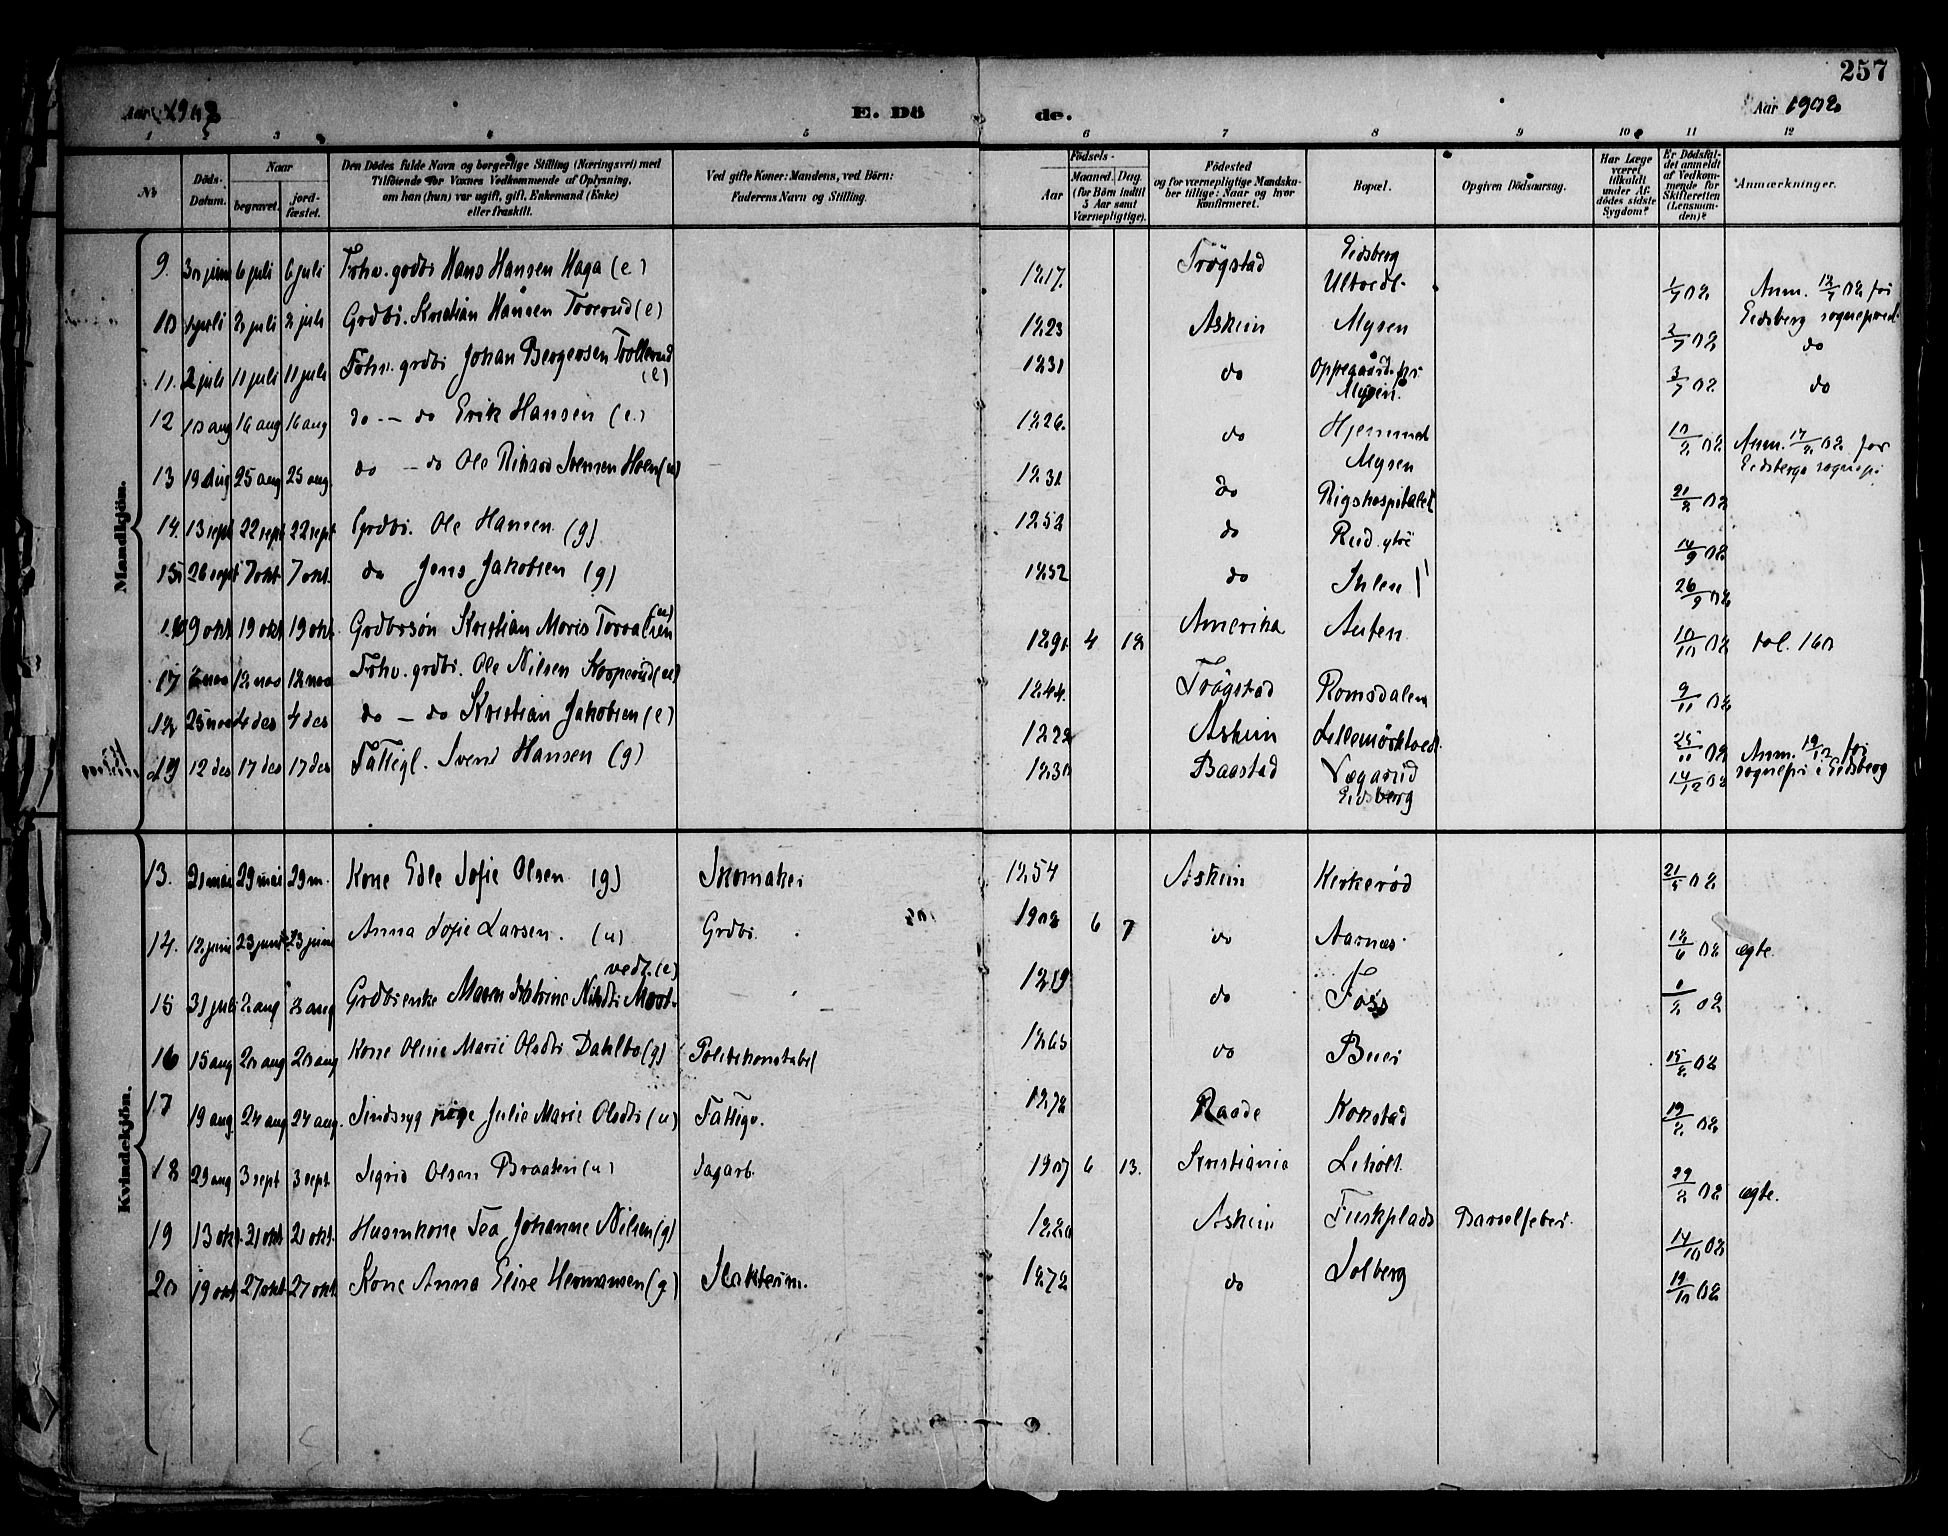 257
Aar 1902 E. Dö de. Aar 1902
1 2 3 4 5 6 7 8 9 10 11 12
№
Döds-Datum.
Naar
begravet.
jord-fæstet.
Den Dödes fulde Navn og borgerlige Stilling (Næringsvei) med
Tilföiende for Voxnes Vedkommende af Oplysning,
om han (hun) var ugift, gift, Enkemand (Enke)
eller fraskilt.
Ved gifte Koner: Mandens, ved Börn:
Faderens Navn og Stilling.
Födsels-
Aar
Maaned. Dag.
(for Börn indtil
5 Aar samt
Værnepligtige).
Födested
og for værnepligtige Mandska-
ber tillige: Naar og hvor
konfirmeret.
Bopæl.
Opgiven Dödsaarsag.
Har Læge
været
tilkaldt
under Af-
dödes sidste
Sygdom?
Er Dödsfal-
det anmeldt
af Vedkom-
mende for
Skifteretten
(Lensman-
den)?
Anmærkninger.
Mandkjön.
9. 30 juni 6 juli 6 juli Forhv. grdbr Hans Hansen Haga (e) 1817. Trögstad Eidsberg Ultvedt. 1/7 02 Anm. 12/7 02 for
10 1 juli 2 juli 2 juli Grdbr. Kristian Hansen Toverud (e) 1823 Askim Mysen 2/7 02 Eidsberg sognepræst. do
11. 2 juli 11 juli 11 juli Forhv. grdbr Johan Bergersen Trollerud (e) 1831 do Oppegaard pr. Mysen. 3/7 02 do
12 10 aug 16 aug 16 aug do - do Erik Hansen (e.) 1826. do Hjemmet Mysen 10/8 02 Anm. 17/8 02 for
13 19 Aug 25 aug 25 aug. do - do Ole Rikard Svensen Hoen (u) 1831 do Rigshospitalet 21/8 02 Eidsbergs sognepr
14. 13 sept 22 sept 22 sept Grdbr. Ole Hansen (g) 1852 do Rud ytre 14/9 02
15 26 sept 7 okt 7 okt. do Jens Jakobsen (g) 1852 do Ihlen 26/9 02
16 9 okt 19 okt 19 okt. Grdbrsön Kristian Moris Torvalsen (u) 1891 4 18 Amerika Auten 10/10 02 tol. 160
17 nov 12 nov 12 nov Forhv. grdbr. Ole Nilsen 1844. Trögstad Romsdalen 9/11 02
18 25 nov 4 des 4 des do - do Kristian Jakobsen (e) 1828 Askim Lillemörktvedt 25/11 02 Anm. 19/12 for
19 12 des 17 des 17 des Fattigl. Svend Hansen (g) 1830 Baastad Vægarud Eidsberg 14/12 02 sognepr i Eidsberg
Kvindekjön.
13. 21 mai 29 mai 29 m. Kone Edle Sofie Olsen (g) Skomaker 1854 Askim Kirkeröd 21/5 02
14. 12 juni 23 juni 23 juni Anna Sofie Larsen. (u) Grdbr. 1902 6 7 do Aarnæs. 12/6 02 ægte.
15 31 juli 2 aug 2 aug Grdbrenke Maren Katrine Nilsdtr (e) 1819 do Foss 1/8 02
16 15 aug 20 aug 20 aug Kone Oline Marie Olsdtr Dahlbo (g) Politikonstabel 1865 do Buer 15/8. 02
17 19 aug. 24 aug 24 aug. Sindssyg pige Julie Marie Olsdtr (u) Fattigv. 1878 Raade Kokstad 19/8. 02
18 29 aug 3 sept 3 sept. Sigrid Olsen Braaten (u) dagarb. 6 13. Kristiania Liholt 29/8 02 ægte.
19 13 okt. 21 okt 21 okt. Husmkone Tea Johanne Nilsen (g) 1880 Askim Fuskplads Barselfeber. 14/10 02
20 19 okt 27 okt 27 okt. Kone Anna Elise Hermansen (g) Slakterim. 1872 do Solberg 19/10 02